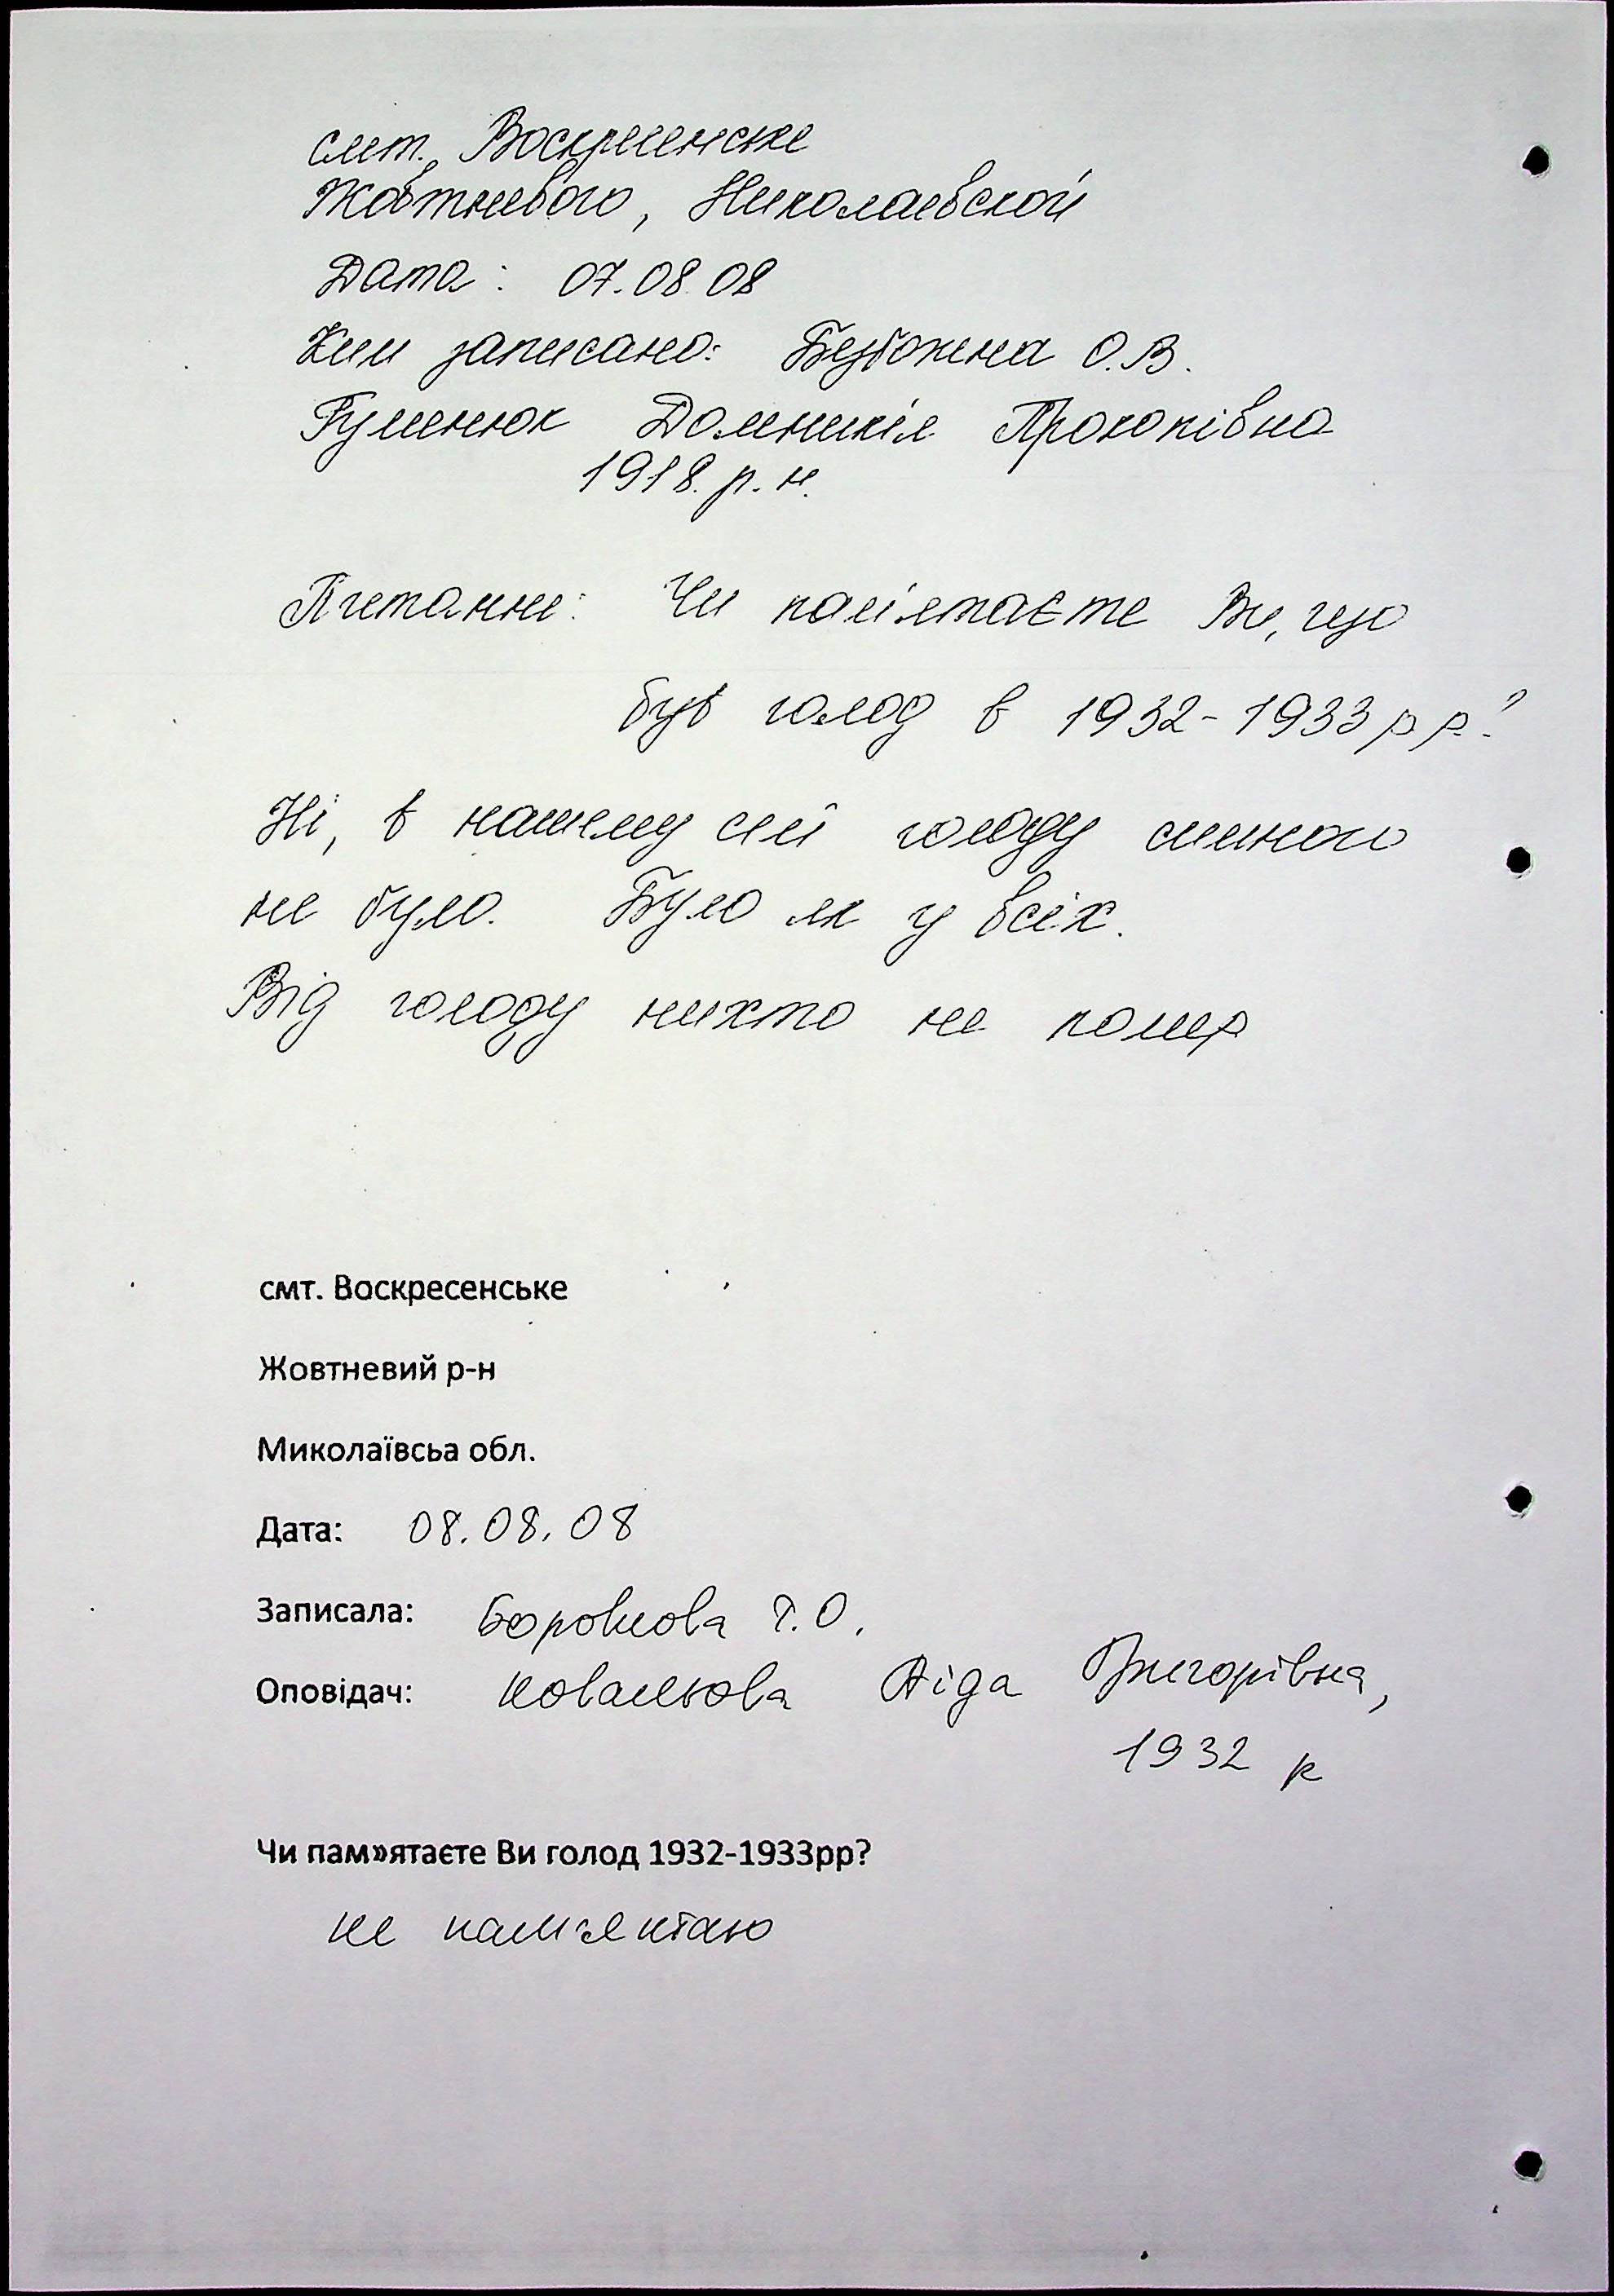 смт. Воскресенське
Жовтневого, Николаевской
Дата: 07.08 08
Ким записано: Безбожна О.В.
Гуменюк Домникія Прокопівна
1918. р. н.
Питанне: Чи памʼятаєте Ви, що
був голод в 1932-1933 р р.?
Ні, в нашему селі голоду сильного
не було. Було як у всіх.
Від голоду нихто не помер
смт. Воскресенське
Жовтневий р-н
Миколаївсьа обл.
Дата: 08.08.08
Записала: Боровкова Т.О.
Оповідач: Ковалькова Аїда Григорівна,
1932 р
Чи пам»ятаєте Ви голод 1932-1933рр?
не пам'ятаю